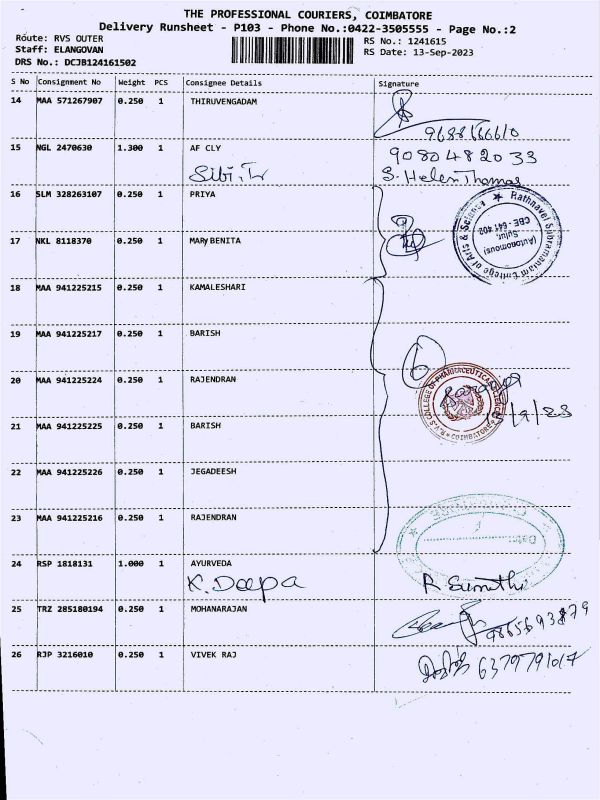 THE PROFESSIONAL COURIERS, COIMBATORE
Delivery Runsheet - P103 - Phone No.:0422-3505555 - Page No.:2
Route: RVS OUTER
Staff: ELANGOVAN
DRS No.: DCJB124161502
RS No.: 1241615
RS Date: 13-Sep-2023
S No Consignment No Weight PCS Consignee Details Signature
14 MAA 571267907 0.250 1 THIRUVENGADAM
15 NGL 2470630 1.300 1 AF CLY 9080482033
S. Helen Thomas
16 SLM 328263107 0.250 1 PRIYA
17 NKL 8118370 0.250 1 MARY BENITA
Rathnavel Subramaniam College of Arts & Science
(Autonomous)
Sulur,
CBE - 641 402
18 MAA 941225215 0.250 1 KAMALESHARI
19 MAA 941225217 0.250 1 BARISH
20 MAA 941225224 0.250 1 RAJENDRAN
COLLEGE OF PHARMACEUTICAL SCIENCES
COIMBATORE
21 MAA 941225225 0.250 1 BARISH
22 MAA 941225226 0.250 1 JEGADEESH
23 MAA 941225216 0.250 1 RAJENDRAN
24 RSP 1818131 1.000 1 AYURVEDA
K. Deepa R Sumathi
25 TRZ 285180194 0.250 1 MOHANARAJAN
26 RJP 3216010 0.250 1 VIVEK RAJ 6379791017